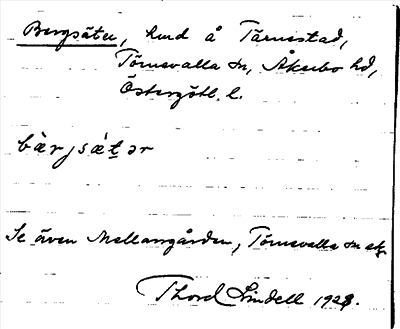 Bergsäter, hmd å Tärnestad,
Törnevalla sn, Åkerbo hd,
Östergötl. l.
bàrjsä̀ṯər
Se även Mellangården, Törnevalla sn etc.
Thord Lindell 1928.